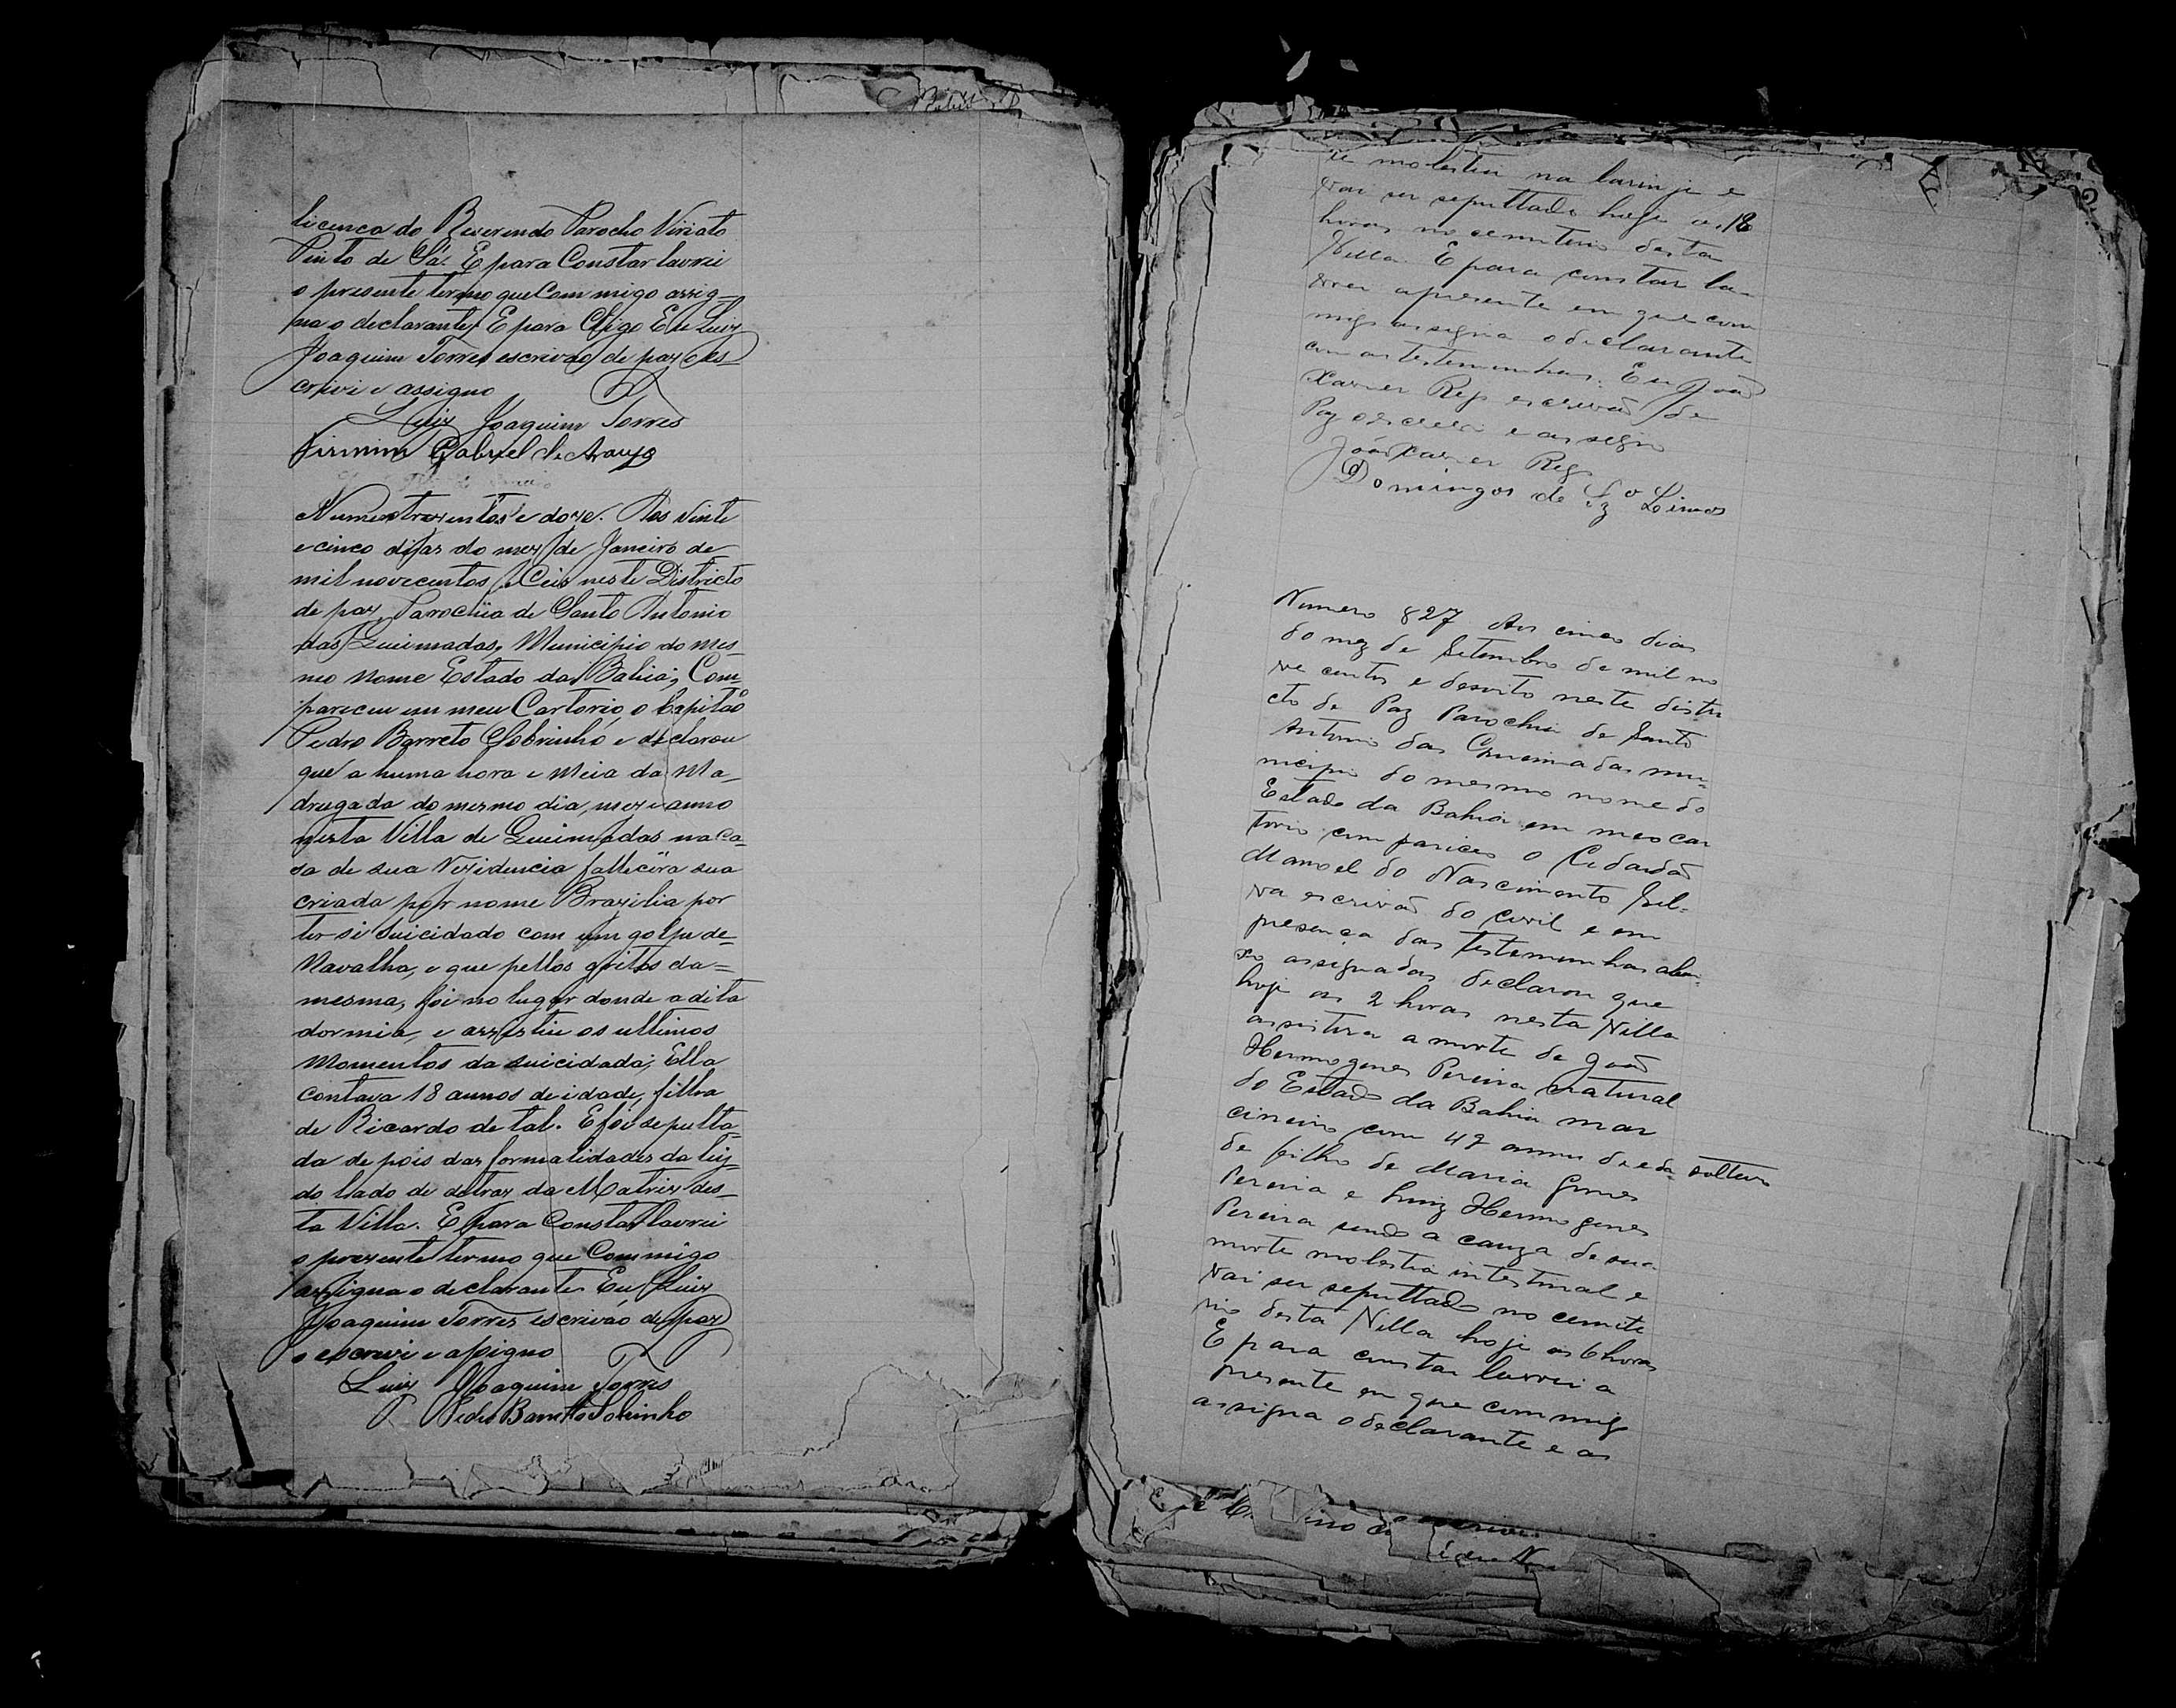 licença do Reverendo Parocho Viriato
Pinto de Sá. E para Constar lavrei
o presente termo que Com migo assig-
na o declarante, E para Eu Luiz
Joaquim Torres escrivão de paz o es-
crivi e assigno
Luiz Joaquim Torres
Firmino Gabriel de Araujo
Numero trezentos e doze. Aos vinte
e cinco dias do mez de Janeiro de
mil novecentos e Ceis neste Districto
de paz, Parochia de Santo Antonio
das Queimadas, Municipio do mes-
mo nome Estado da Bahia; Com-
pareceu em meu Cartorio, o Capitão
Pedro Barreto Sobrinho e declarou
que a huma hora e meia da Ma-
drugada do mesmo dia, mez e anno
nesta Villa de Queimadas na ca-
sa de sua Rezidencia fallecêra sua
criada por nome Brazilia por
ter si suicidado com um golpe de-
Navalha, e que pellos gritos da=
mesma, foi no lugar donde a dita
dormia, e assistiu os ultimos
Momentos da suicidada; Ella
contava 18 annos de idade, filha
de Ricardo de tal. E foi sepulta-
da de pois das formalidades da lei,
do llado de detraz da Matriz des-
ta Villa. E para Constar lavrei
o prezente termo que Commigo
assigna o declarante Eu Luiz
Joaquim Torres escrivão de paz
o escrivi e assigno
Luiz Joaquim Torres
Pedro Barretto Sobrinho
de molestia na larinje e
vai ser sepultado hoje as
horas no cemiterio desta
Villa. E para constar la-
vrei apresente em que com
migo assigna o declarante
com as testemunhas. Eu João
Xavier Rego escrivão de
Paz o escrevi e assigno
João Xavier Rego
Domingos de Lemos
Numero 827 Aos cinco dias
do mez de Setembro de mil no
ve centos e desoito neste distri
cto de Paz Parochia de Santo
Antonio das Queimadas mu-
nicipio do mesmo nome do
Estado da Bahia em meo car
torio compareceo o Cidadão
Manoel do Nascimento Sil-
va escrivão do civil e em
presença das testemunhas abai
xo assignadas declarou que
hoje as 2 horas nesta Villa
assistira a morte de João
Hermogenes Pereira natural
do Estado da Bahia mar
cineiro com annos de eda solteiro
de filho de Maria Gomes
Pereira e Luiz Hermogenes
Pereira sendo a cauza de sua
morte molestia intestinal e
vai ser sepultado no cemite
rio desta Villa hoje as 6 horas
E para constar lavrei a
presente em que commigo
assigna o declarante e as